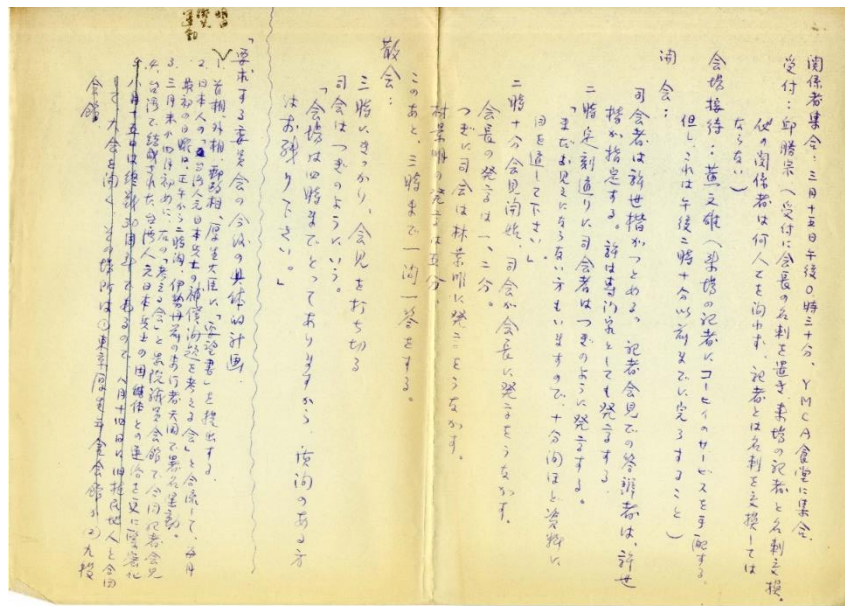 関係者集合:三月十五日午後0時三十分、YMCA食堂に集合、
受付:邱勝宗(受付に会長の名刺を置き、来場の記者と名刺交換。
他の関係者は何人てを問わず、記者とは名刺を交換しては
ならない)
会場接待:黄文雄(来場の記者にコーヒィのサービスを手配する、
但し、これは午後二時十分以前までに完了すること)
開会:
司会者は許世楷がつとめる。記者会見での答弁者は、許世
楷が指定する。許は専門家としても発言する。
二時定刻通りに司会者はつぎのように発言する。
「まだお見えにならない方もいますので、十分間ほど資料に
目を通して下さい」
二時十分会見開始、司会が会長に発言をうながす。
会長の発言は一、二分。
つぎに司会は林景明に発言をうながす。
林景明の発言は五分、
このあと、三時まで一問一答をする。
散会:
三時にきっかり、会見を打ち切る
司会はつぎのようにいう。
「会場は四時までとってありますから、質問のある方
はお残り下さい。」
「要求する委員会の今後の具体的計画、
1. 首相、外相、郵政相、厚生大臣に「要望書」を提出する。
2. 日本人の「台湾人元日本兵士の補償問題を考える会」と合流して、毎月
最初の日曜日正午から二時間、伊勢丹前の歩行者天国で署名運動。
3. 三月末か四月初めに、右の「考える会」と衆院議員会館で合同記者会見
4. 台湾で結成された台湾人元日本兵士の団体との連合を更に緊密化
5. 八月十五日は終戦30周年であるので、八月十四日に旧植民地人と合同
して大会を開く、その場所は
会館
署名
運動